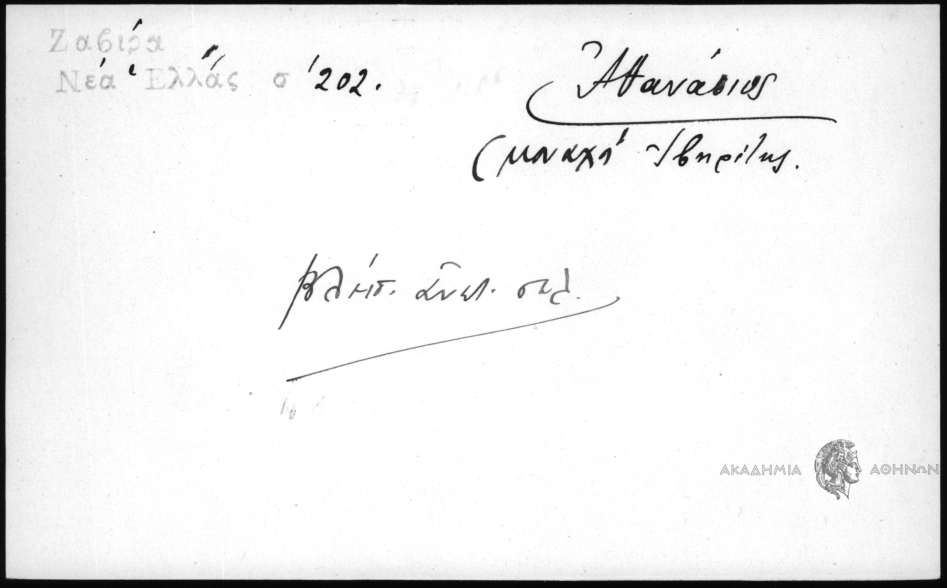 Ζαβίρα
Νέα Ἑλλάς σ 202.
Ἀθανάσιος
(μοναχὸ Ἰβηρίτης.
βλέπ. ἀνωτ. σελ.
ΑΚΑΔΗΜΙΑ ΑΘΗΝΩΝ